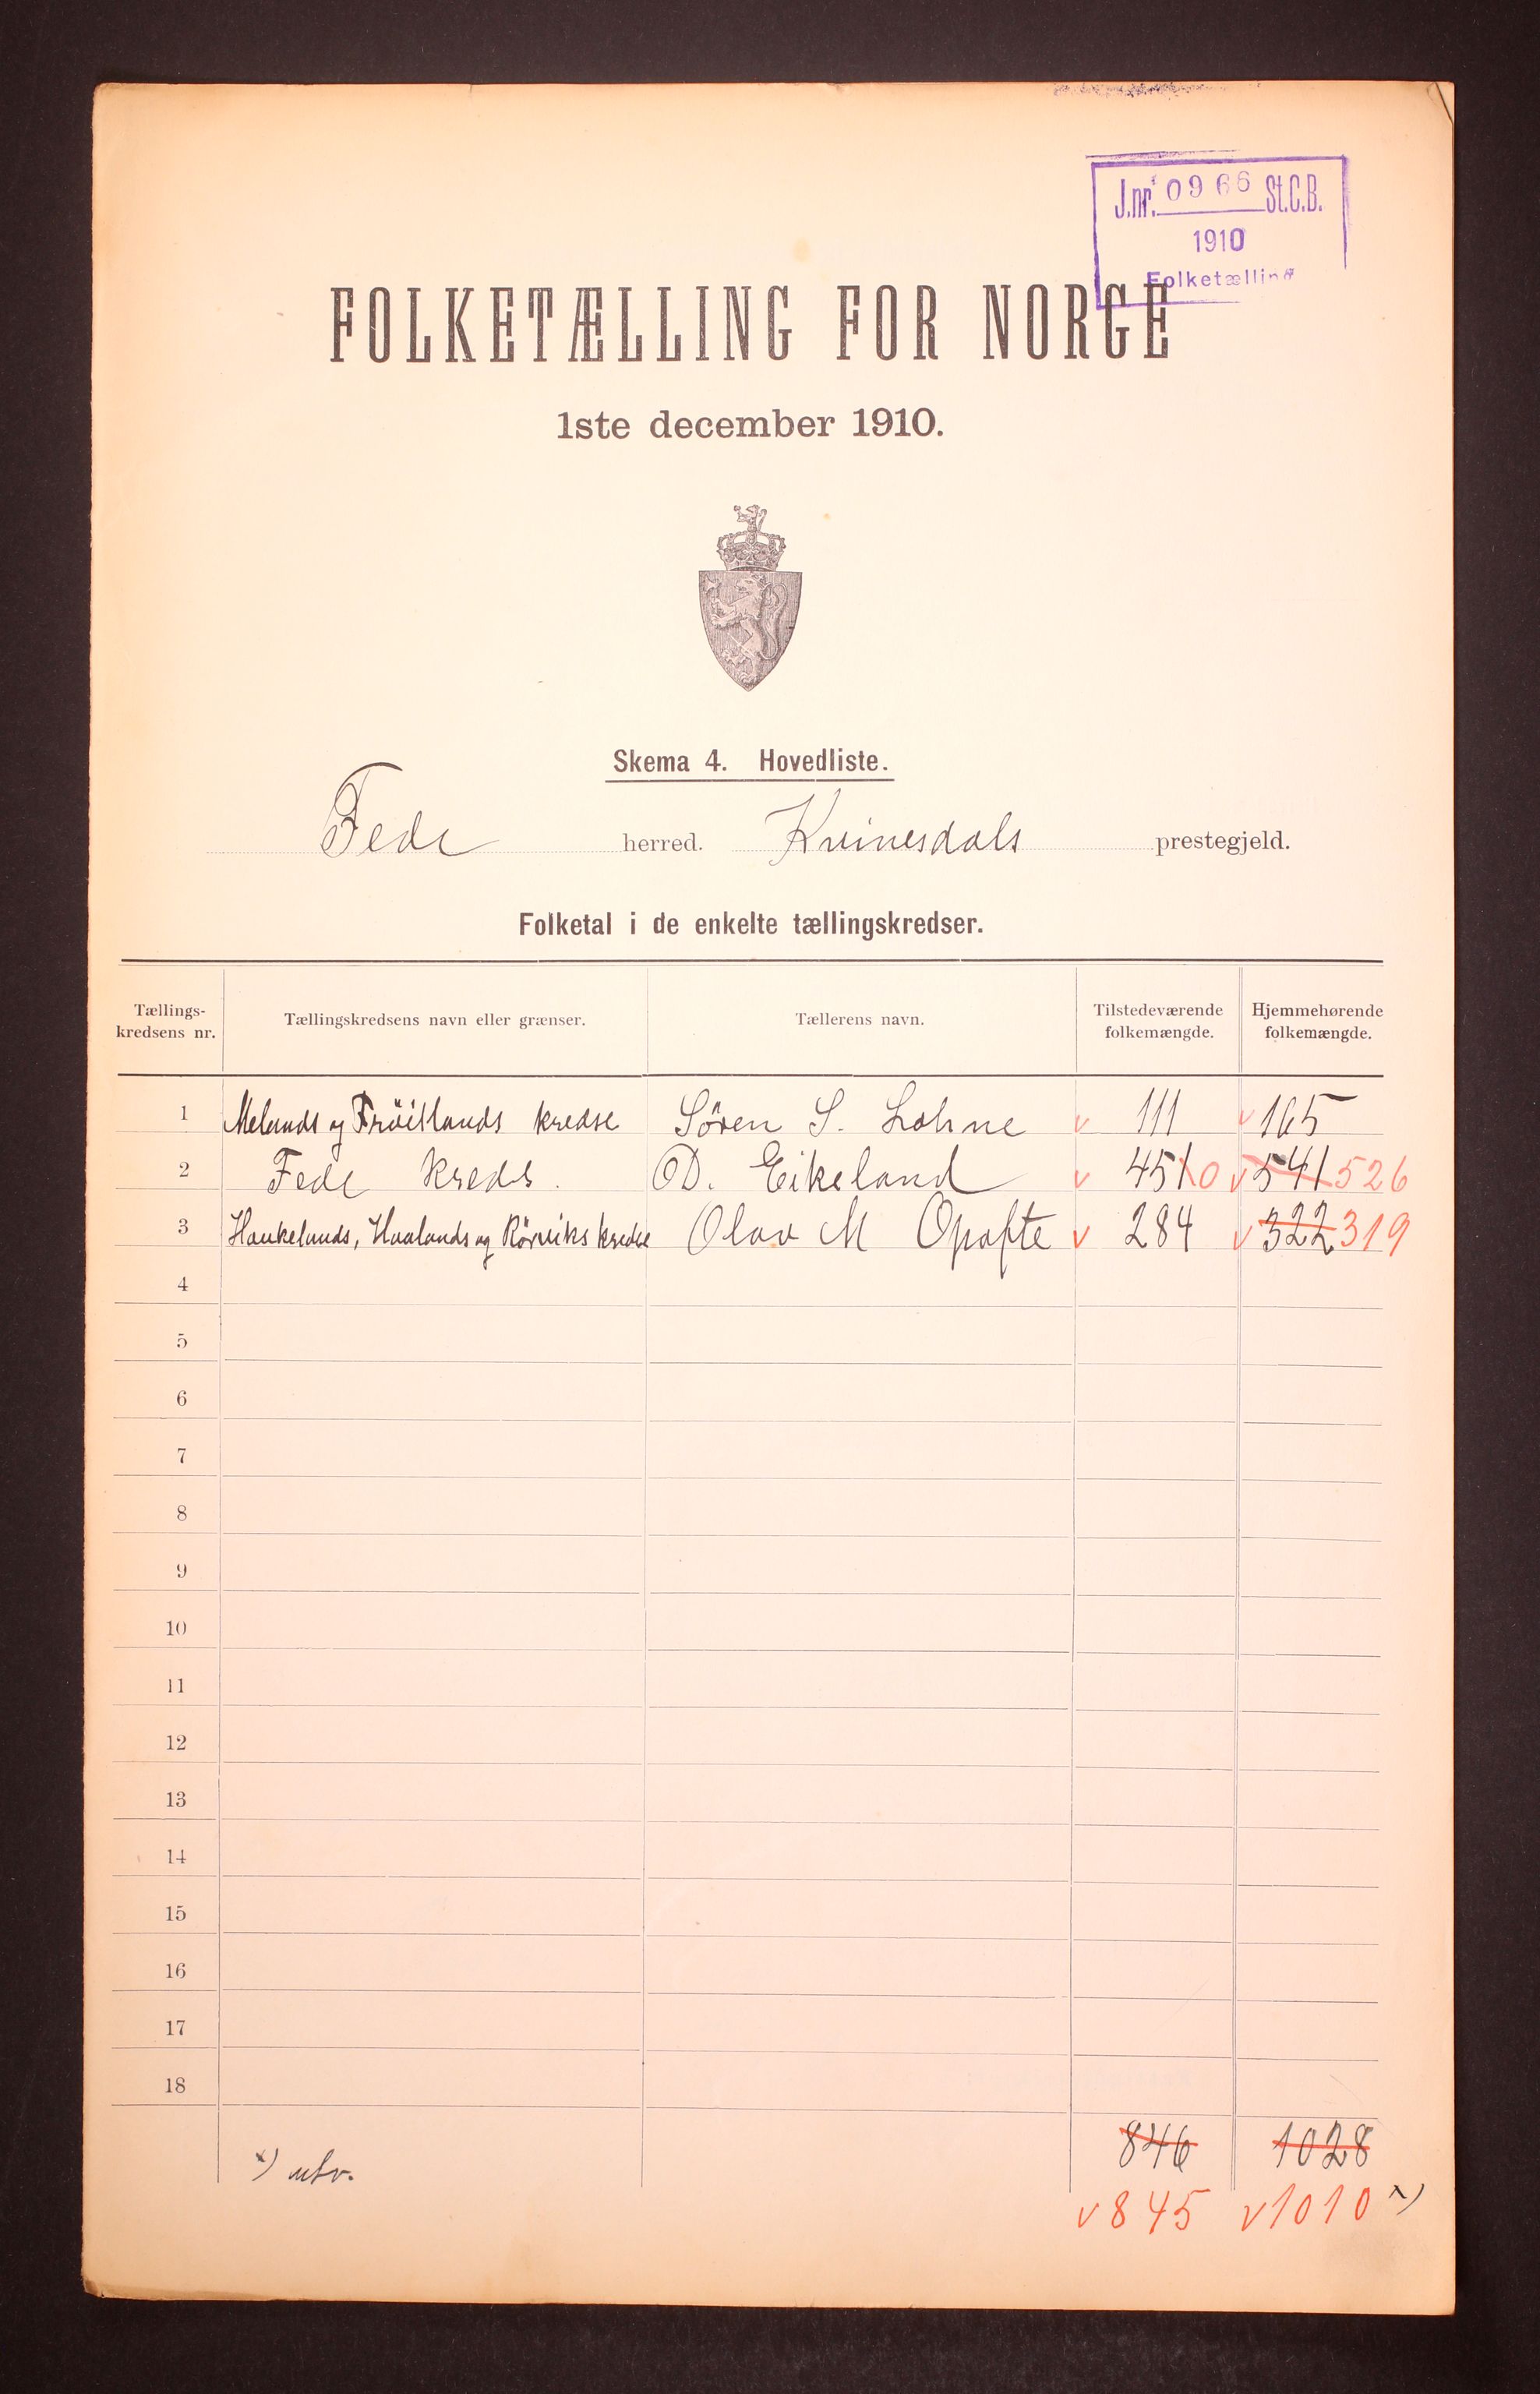 J.nr. 0966 St.C.B.
1910
Folketælling
FOLKETÆLLING FOR NORGE
1ste december 1910.
Skema 4. Hovedliste.
Fede herred. Kvinesdals prestegjeld.
Folketal i de enkelte tællingskredser.
Tællings-kredsens nr. Tællingskredsens navn eller grænser. Tællerens navn. Tilstedeværende folkemængde. Hjemmehørende folkemængde.
1 Melands og Fröitlands kredse Sören S. Lohne v 111 v 165
2 Fede kreds. O. Eikeland v 4510 v 541 526
3 Haukelands, Haalands og Rörviks kredse Olav M Opofte v 284 v 322 319
4
5
6
7
8
9
10
11
12
13
14
15
16
17
18
846 1028
x) utv.
v 845 v 1010 x)